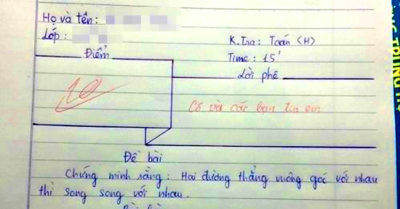 Họ và tên:
Lớp:
K.Tra: Toán (H)
Time: 15'
Điểm
Lời phê
10
Cô và các bạn
Đề bài
Chứng minh rằng: Hai đường thẳng vuông góc với nhau
thì song song với nhau.